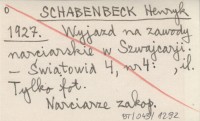 0
SCHABENBECK Henryk
1927. Wyjazd na zawody
narciarskie w Szwajcarji.
- Światowid 4, nr 4: , il.
Tylko fot.
Narciarze zakop.
BT/049/1292